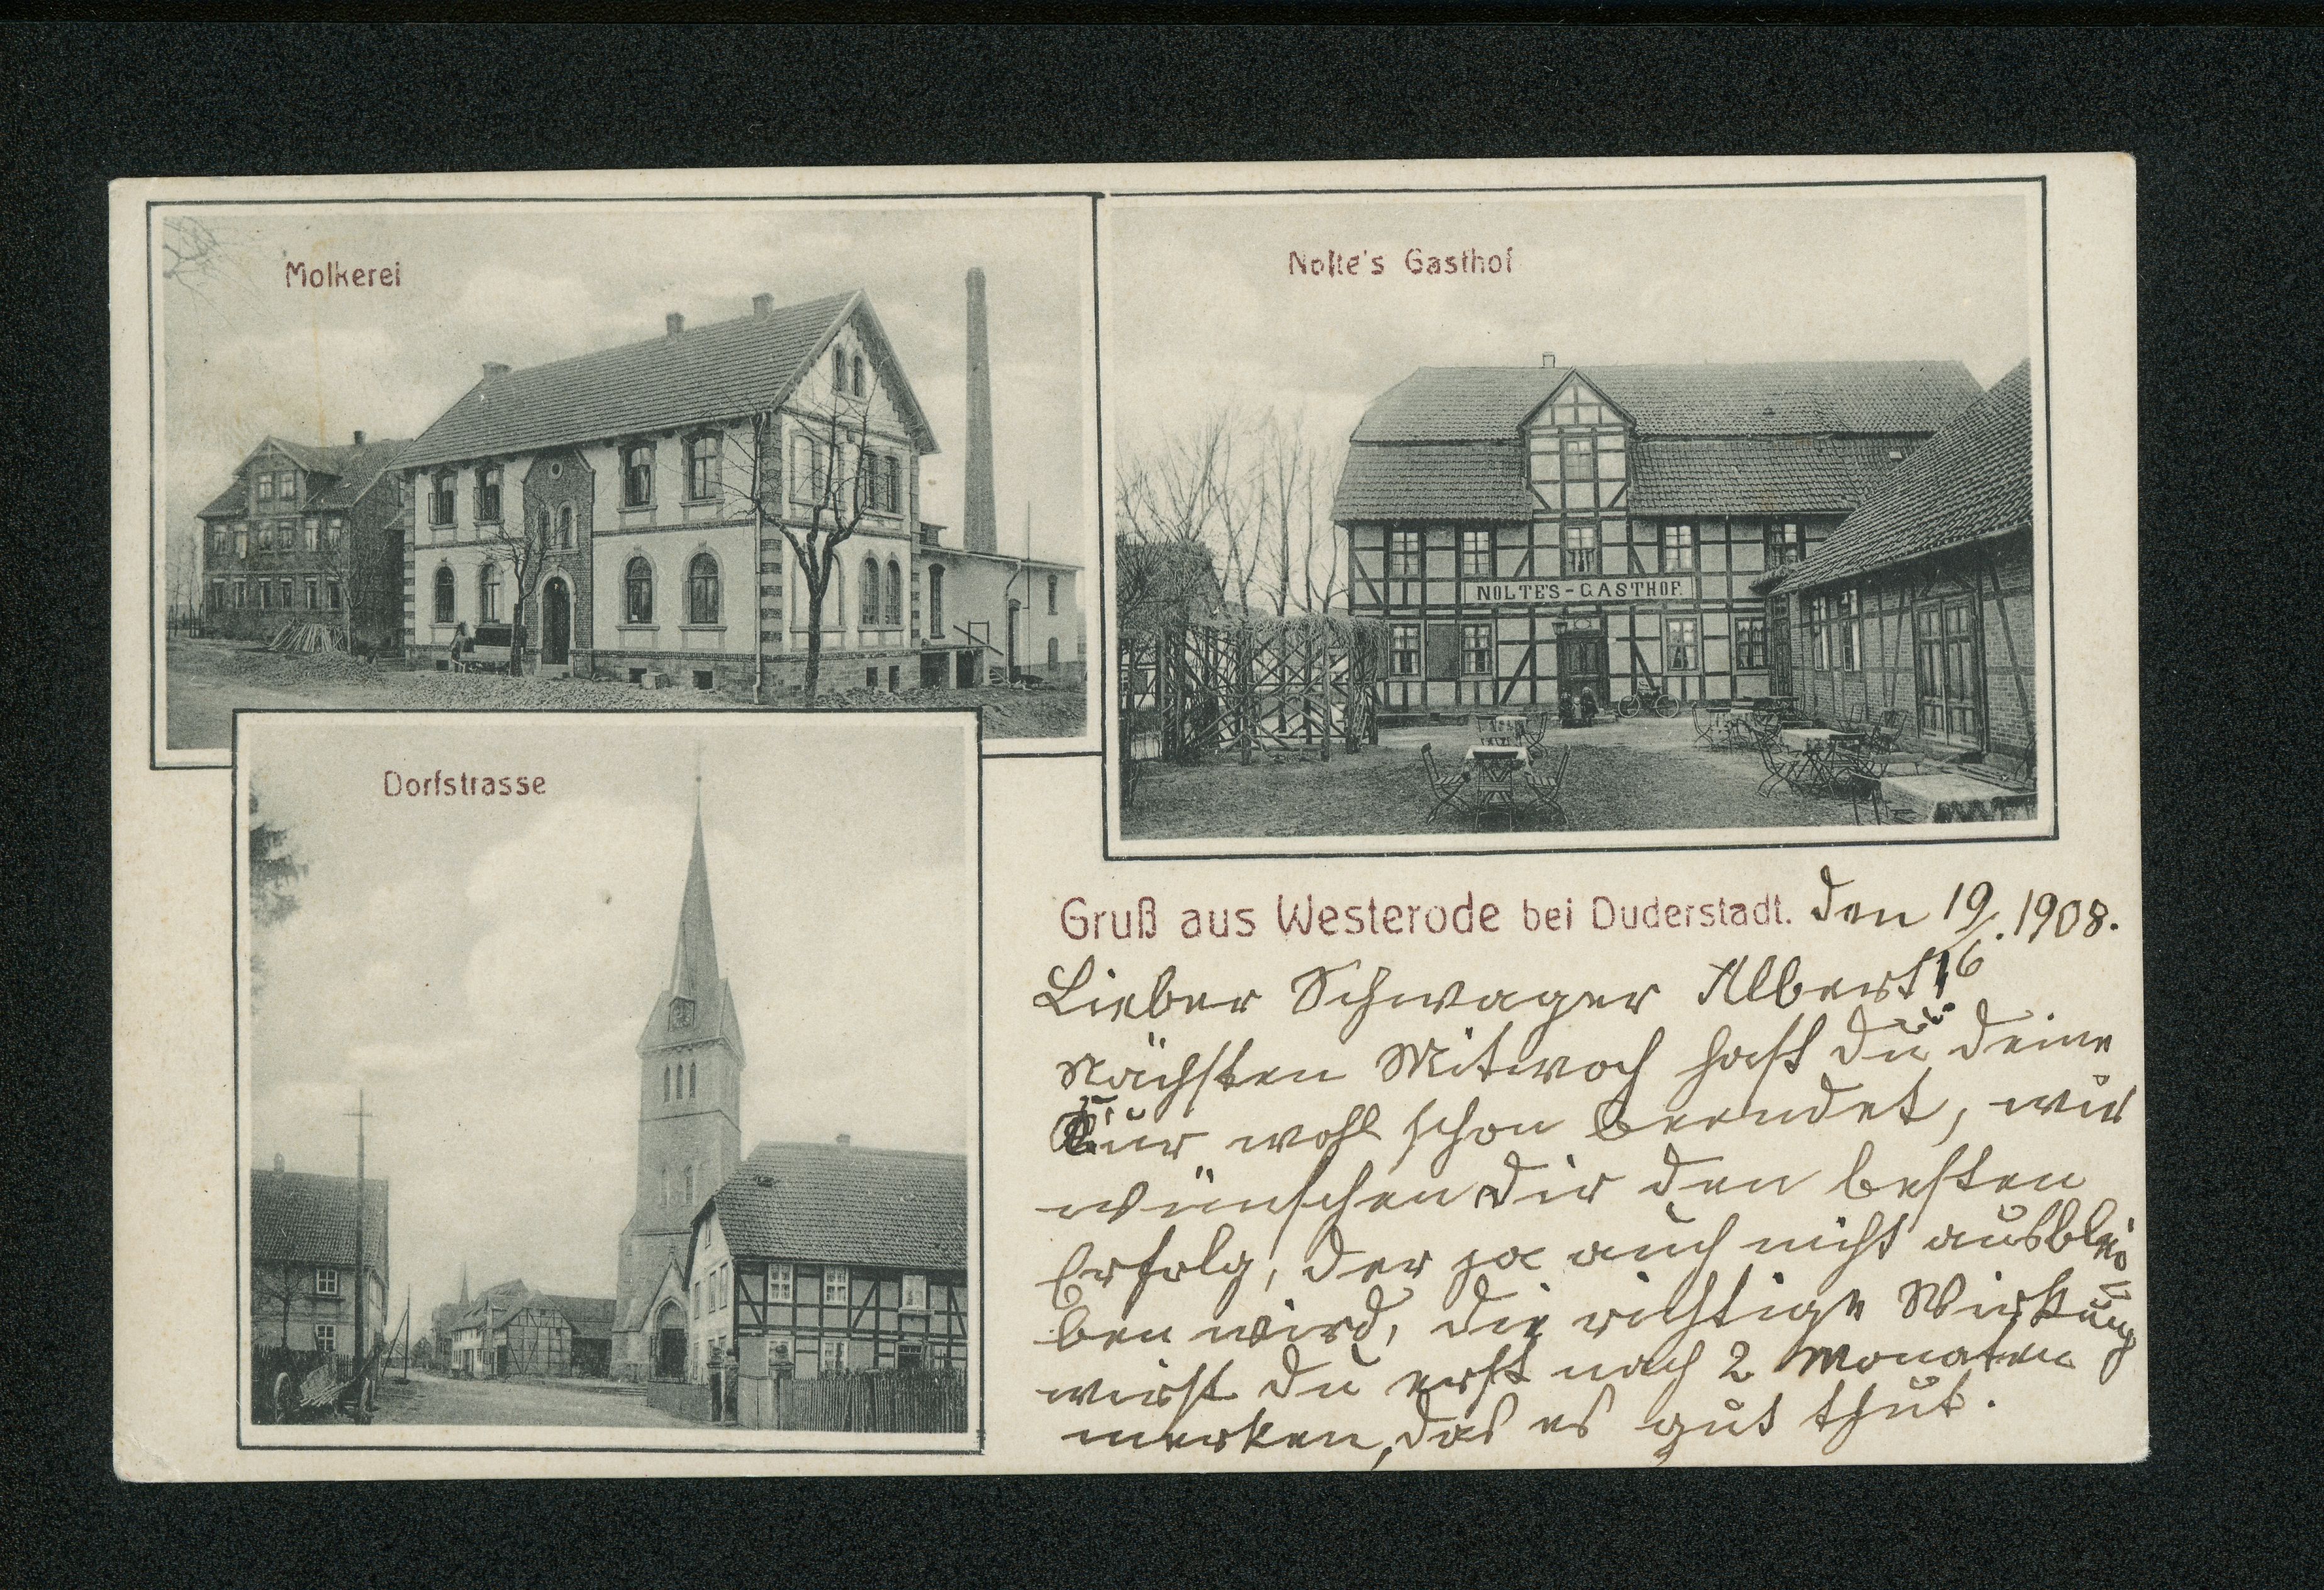 Molkerei
Nolte's Gasthof
NOLTE'S-GASTHOF.
Dorfstrasse
Gruß aus Westerode bei Duderstadt. den 19/6. 1908.
Lieber Schwager Albert!
Nächsten Mitwoch hast du deine
Kur wohl schon beendet, wir
wünschen dir den besten
Erfolg, der ja auch nicht ausblei=
ben wird, die richtige Wirkung
wirst du erst nach 2 Monaten
merken, das es gut thut.